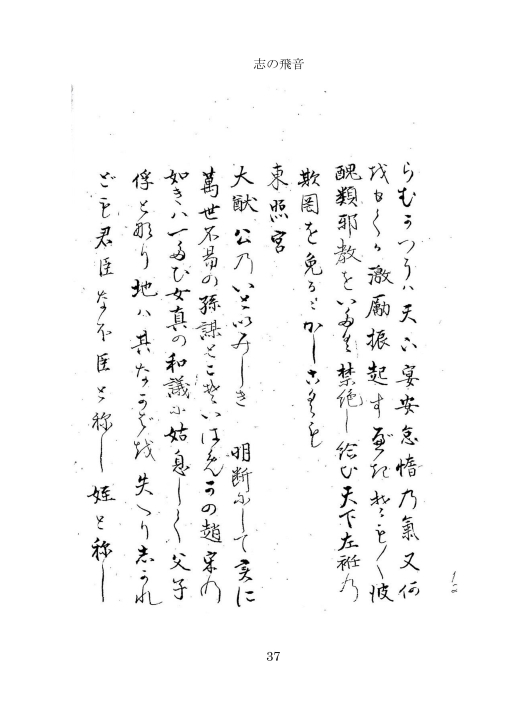 志の飛音
らむうつうハ天下宴安怠惰乃氣又何
越もてか激勵振起すべき抑も〳〵彼
醜類邪教をいたく禁絶し給ひ天下左衽乃
欺罔を免るゝかしこくも
東照宮
大猷公乃いといみしき 明断にして実に
萬世不易の孫謀とこそいはめかの趙宋乃
如きハ一たび女真の和議に姑息して父子
俘と那り地ハ其なかば越失へり志かれ
ども君臣な不臣と称し姪と称し
37